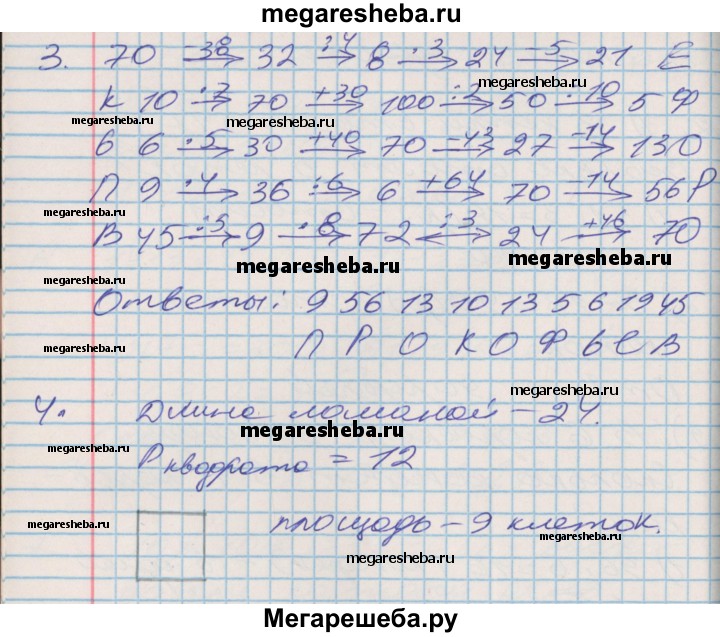 megaresheba.ru
3. 70 -38→ 32 :4→ 8 ·3→ 24 -5→ 21 Е
megaresheba.ru
К 10 ·7→ 70 +30→ 100 :2→ 50 :10→ 5 Ф
megaresheba.ru megaresheba.ru
6 6 ·5→ 30 +40→ 70 -43→ 27 -14→ 13 О
megaresheba.ru
П 9 ·4→ 36 :6→ 6 +64→ 70 -14→ 56 Р
megaresheba.ru
В 45 :5→ 9 ·8→ 72 :3→ 24 +46→ 70
megaresheba.ru megaresheba.ru
Ответы: 9 56 13 10 13 5 6 19 45
П Р О К О Ф Ь Е В
megaresheba.ru
megaresheba.ru
4. Длина ломаной – 24.
megaresheba.ru megaresheba.ru
P квадрата = 12
площадь – 9 клеток.
megaresheba.ru megaresheba.ru
megaresheba.ru
Мегарешеба.ру